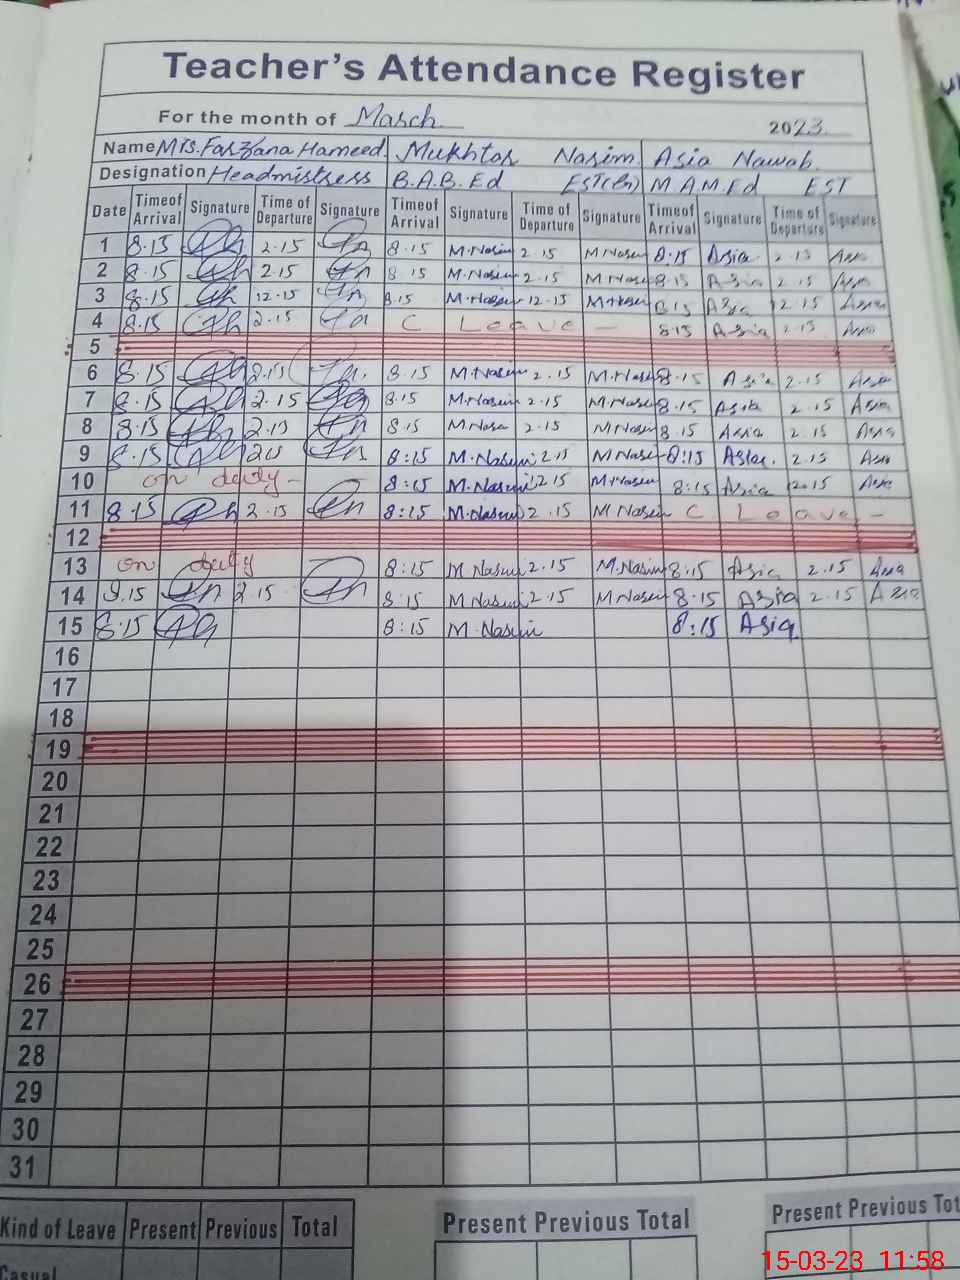 Teacher's Attendance Register
For the month of March 2023
Name Mrs. Farzana Hameed Mukhtar Nasim Asia Nawab.
Designation Headmistress B.A.B.Ed EST(Gn) M.A.M.Ed EST
Date Timeof Arrival Signature Time of Departure Signature Timeof Arrival Signature Time of Departure Signature Timeof Arrival Signature Time of Departure Signature
1 8.15 2.15 8.15 M.Nasim 2.15 M Nasim 8:15 Asia 2.15 Asia
2 8.15 2.15 8 15 M.Nasim 2.15 M Nasim 8:15 Asia 2.15 Asia
3 8.15 12.15 8.15 M.Nasim 12.15 M.Nasim 8:15 Asia 2.15 Asia
4 8.15 2.15 C Leave - 8:15 Asia 2.15 Asia
5
6 8.15 2.15 8.15 M.Nasim 2.15 M.Nasim 8.15 Asia 2.15 Asia
7 8.15 2.15 8.15 M.Nasim 2.15 M.Nasim 8.15 Asia 2.15 Asia
8 8.15 2.15 8.15 M Nasim 2.15 M.Nasim 8.15 Asia 2.15 Asia
9 8.15 8:15 M.Nasim 2 15 M.Nasim 8:15 Asia. 2.15 Asia
10 on duty - 8:15 M.Nasim 2 15 M.Nasim 8:15 Asia 2.15 Asia
11 8.15 2.15 8:15 M.Nasim 2.15 M Nasim C Leave -
12
13 on duty 8:15 M Nasim 2.15 M.Nasim 8:15 Asia 2.15 Asia
14 2.15 8:15 M Nasim 2.15 M Nasim 8.15 Asia 2.15 Asia
15 8.15 8:15 M.Nasim 8:15 Asia
16
17
18
19
20
21
22
23
24
25
26
27
28
29
30
31
Kind of Leave Present Previous Total Present Previous Total Present Previous Tot
Casual
15-03-23 11:58